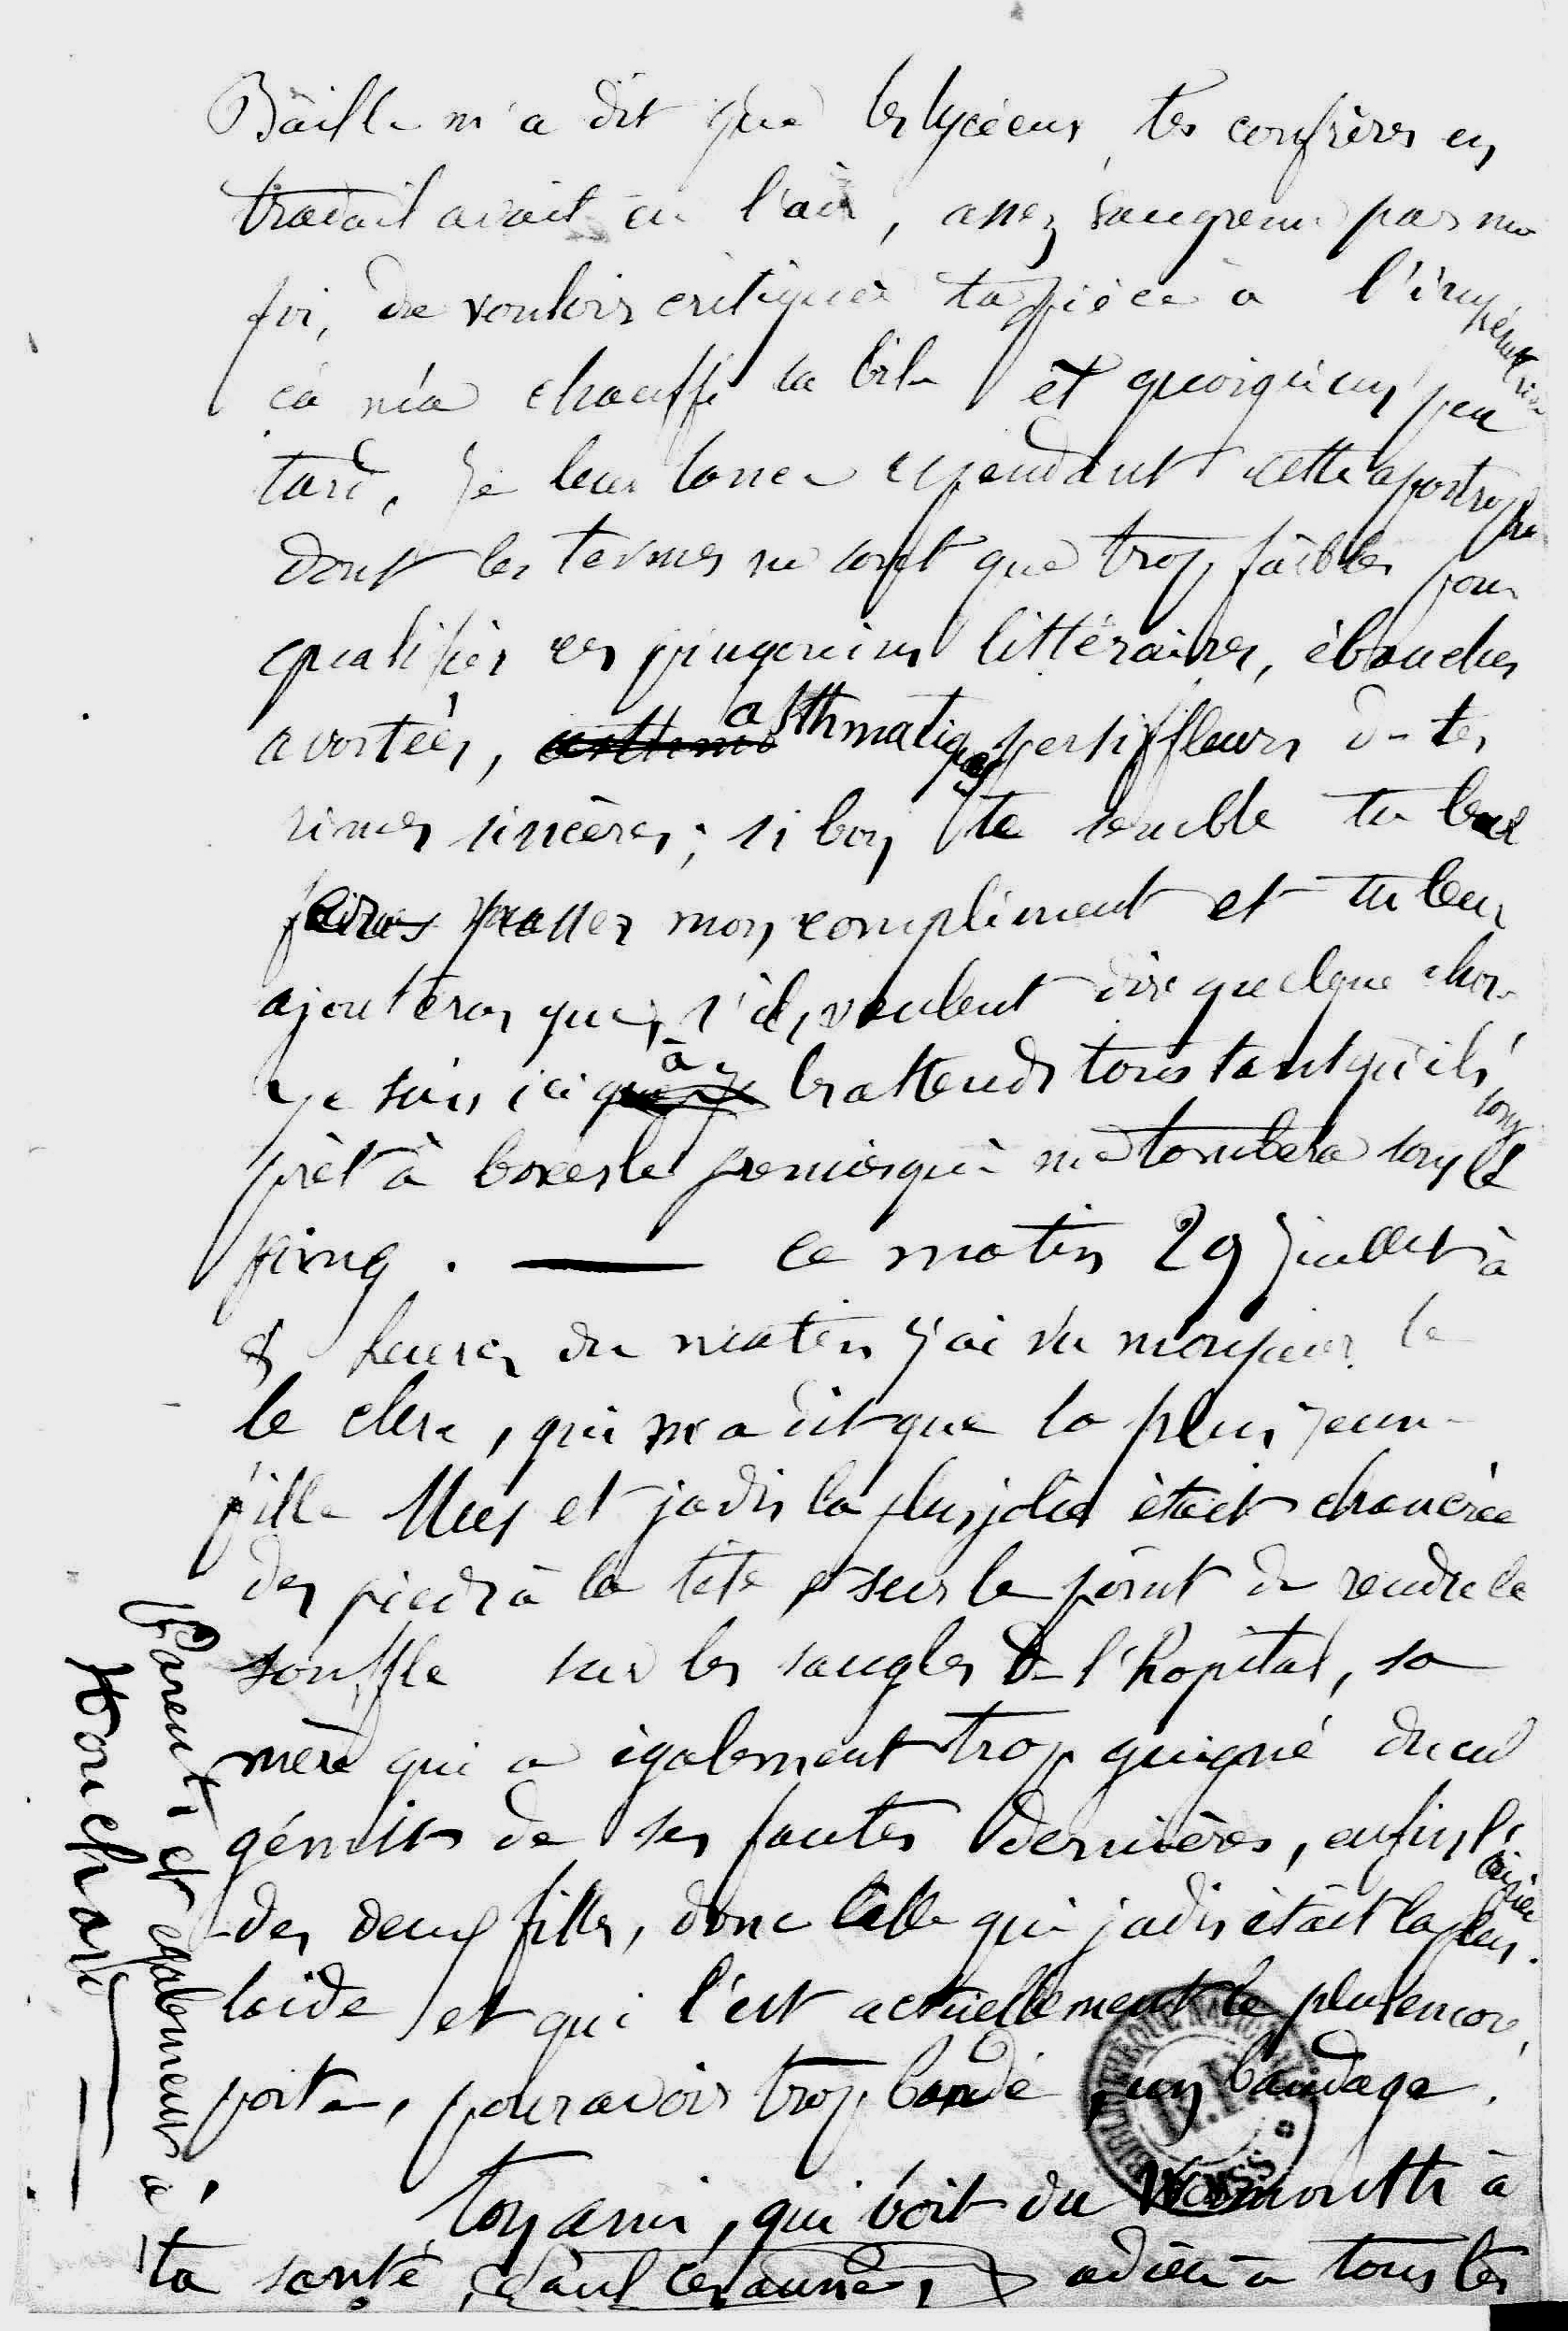 Bâille m'a dit que les lycéens, tes confrères en
travail avait eu l'air, assez saugrenu par ma
foi, de vouloir critiquer ta pièce à l'impératrice
ça m'a chauffé la bile et quoiqu'un peu
tard, je leur lance cependant cette apostrophe
dont les termes ne sont que trop faibles pour
qualifier ces pingouins littéraires, ébauches
avortées, asthmatiques persiffleurs de tes
rimes sincères; si bon te semble tu leur
feras passer mon compliment et tu leur
ajouteras que, s'ils veulent dire quelque chose
je suis ici à les attendre tous tant qu'ils sont
prêt à boxer le premier qui me tombera sous le
poing. — ce matin 29 juillet à
8 heures du matin j'ai vu monsieur le
le clerc, qui m'a dit que la plus jeune
fille et jadis la plus jolie était chancrée
des pieds à la tête et sur le point de rendre le
souffle sur les sangles de l'hopital, sa
mère qui a également trop guigné du cul
gémit de ses fautes dernières, enfin l'ainée
des deux filles, donc celle qui jadis était la plus
laide et qui l'est actuellement le plus encore,
porte, pour avoir trop bandé, un bandage.
ton ami, qui boit du Vermouth à
ta santé, Paul Cezanne, adieu à tous tes
Parents et également à
Houchard
BIBLIOTHEQUE NATIONALE
R.F.
MSS